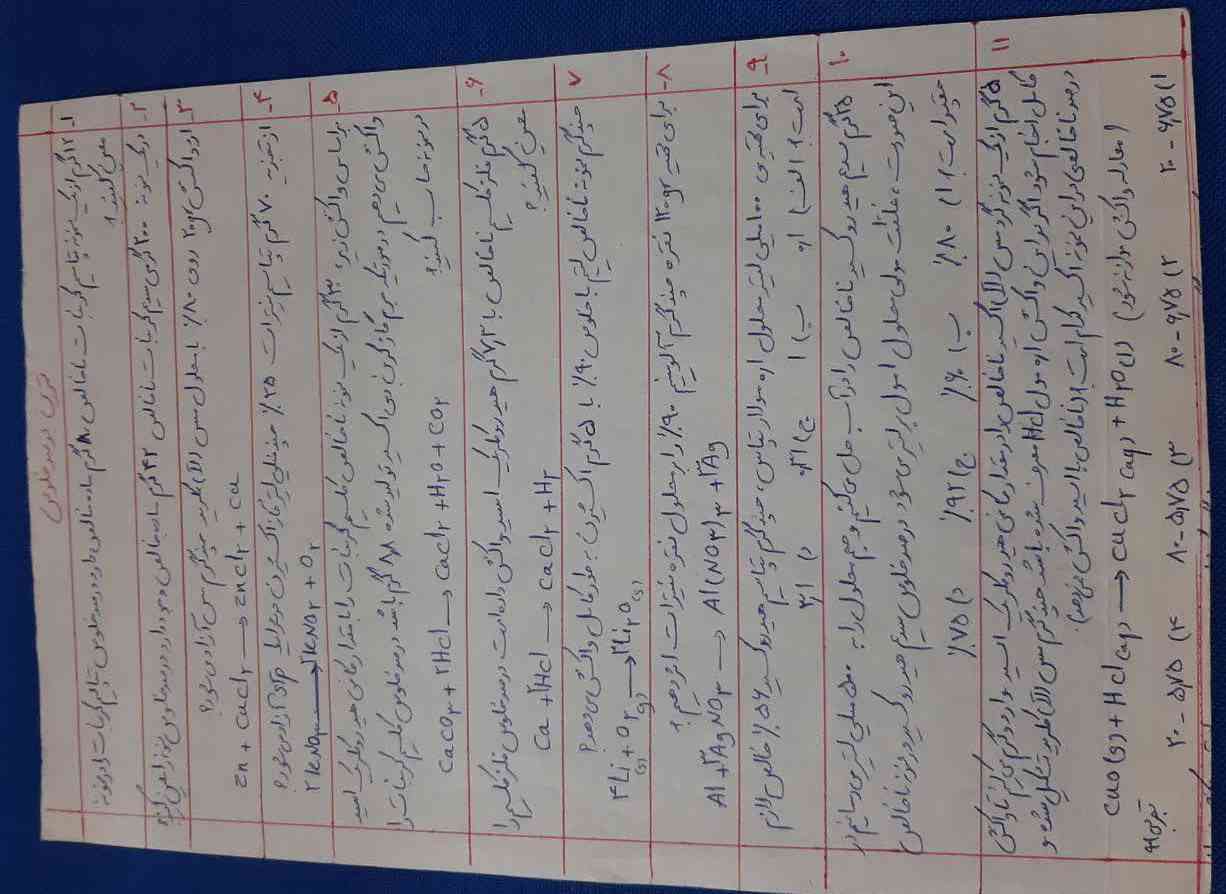 تمرین درصد خلوص
۱- ۱۲ گرم از یک نمونه پتاسیم کربنات ناخالص ۸ گرم ماده خالص دارد درصد خلوص پتاسیم کربنات را در نمونه
معین کنید؟
۲- در یک نمونه ۲۰۰ گرمی سدیم کربنات ناخالص ۴۲ گرم ماده خالص وجود دارد درصد خلوص نمونه را معین کنید؟
۳- از واکنش ۲۰ گرم روی ۸۰٪ با محلول مس (II) کلرید چند گرم مس آزاد می شود؟
zn + cucl۲ → zncl۲ + cu
۴- از تجزیه ۷۰ گرم پتاسیم نیترات ۲۵٪ چند میلی لیتر گاز اکسیژن در شرایط STP آزاد می شود؟
۲KNO۳ → ۲KNO۲ + O۲
۵- بر اساس واکنش زیر، ۳۰ گرم از یک نمونه ناخالص کلسیم کربنات را با مقدار کافی هیدروکلریک اسید
واکنش می دهیم در صورتیکه جرم گاز کربن دی اکسید تولید شده ۸٫۸ گرم باشد درصد خلوص کلسیم کربنات را
در نمونه حساب کنید؟
CaCO۳ + ۲HCl → CaCl۲ + H۲O + CO۲
۶- ۵ گرم فلز کلسیم ناخالص با ۷٫۳ گرم هیدروکلریک اسید واکنش داده است درصد خلوص فلز کلسیم را
معین کنید؟
Ca + ۲HCl → CaCl۲ + H۲
۷ چند گرم نمونه ناخالص لیتیم با خلوص ۹۰٪ با ۵ گرم اکسیژن به طور کامل واکنش می دهد؟
۴Li(s) + O۲(g) → ۲Li۲O(s)
۸- برای تهیه ۱۲۰ گرم نقره چند گرم آلومینیم ۹۰٪ را در محلول نقره نیترات اثر دهیم؟
Al + ۳AgNO۳ → Al(NO۳)۳ + ۳Ag
۹- برای تهیه ی ۱۰۰ میلی لیتر محلول ۰٫۱ مولار پتاس چند گرم پتاسیم هیدروکسید ۵۶٪ خالص لازم
است؟ الف) ۰٫۱ ب) ۱ ج) ۰٫۳۱ د) ۳٫۱
۱۰ ۲۵ گرم سدیم هیدروکسید ناخالص را در آب حل می کنیم و حجم محلول را به ۵۰۰ میلی لیتر می رسانیم در
این صورت، غلظت مولی محلول ۱ مول بر لیتر می شود درصد خلوص سدیم هیدروکسید در نمونه ناخالص
چقدر است؟ ۱) ۸۰٪ ب) ۶۰٪ ج) ۹۲٪ د) ۷۵٪
۱۱ ۵ گرم از یک نمونه گرد مس (II) اکسید ناخالص را در مقدار کافی هیدروکلریک اسید وارد و گرم می کنیم تا واکنش
کامل انجام شود اگر برای این واکنش ۰٫۱ مول HCl مصرف شده باشد چند گرم مس (II) کلرید تشکیل شده و
درصد ناخالصی در این نمونه اکسید کدام است؟ (ناخالصی با اسید واکنش نمی دهد).
cuo(s) + Hcl(aq) → cucl۲(aq) + H۲o(l) (معادله واکنش موازنه شود)
تجربی ۹۱
۱) ۶٫۷۵ - ۲۰ ۲) ۶٫۷۵ - ۸۰ ۳) ۵٫۷۵ - ۸۰ ۴) ۵٫۷۵ - ۲۰